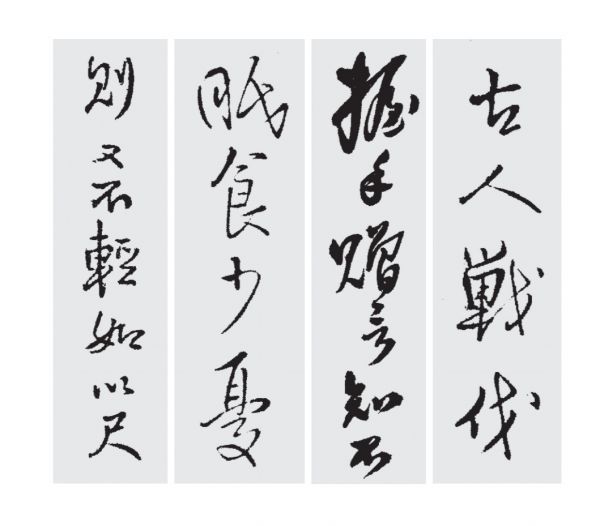 古人戰伐
握手赠言知不
眠食少憂
则又不輕如以尺